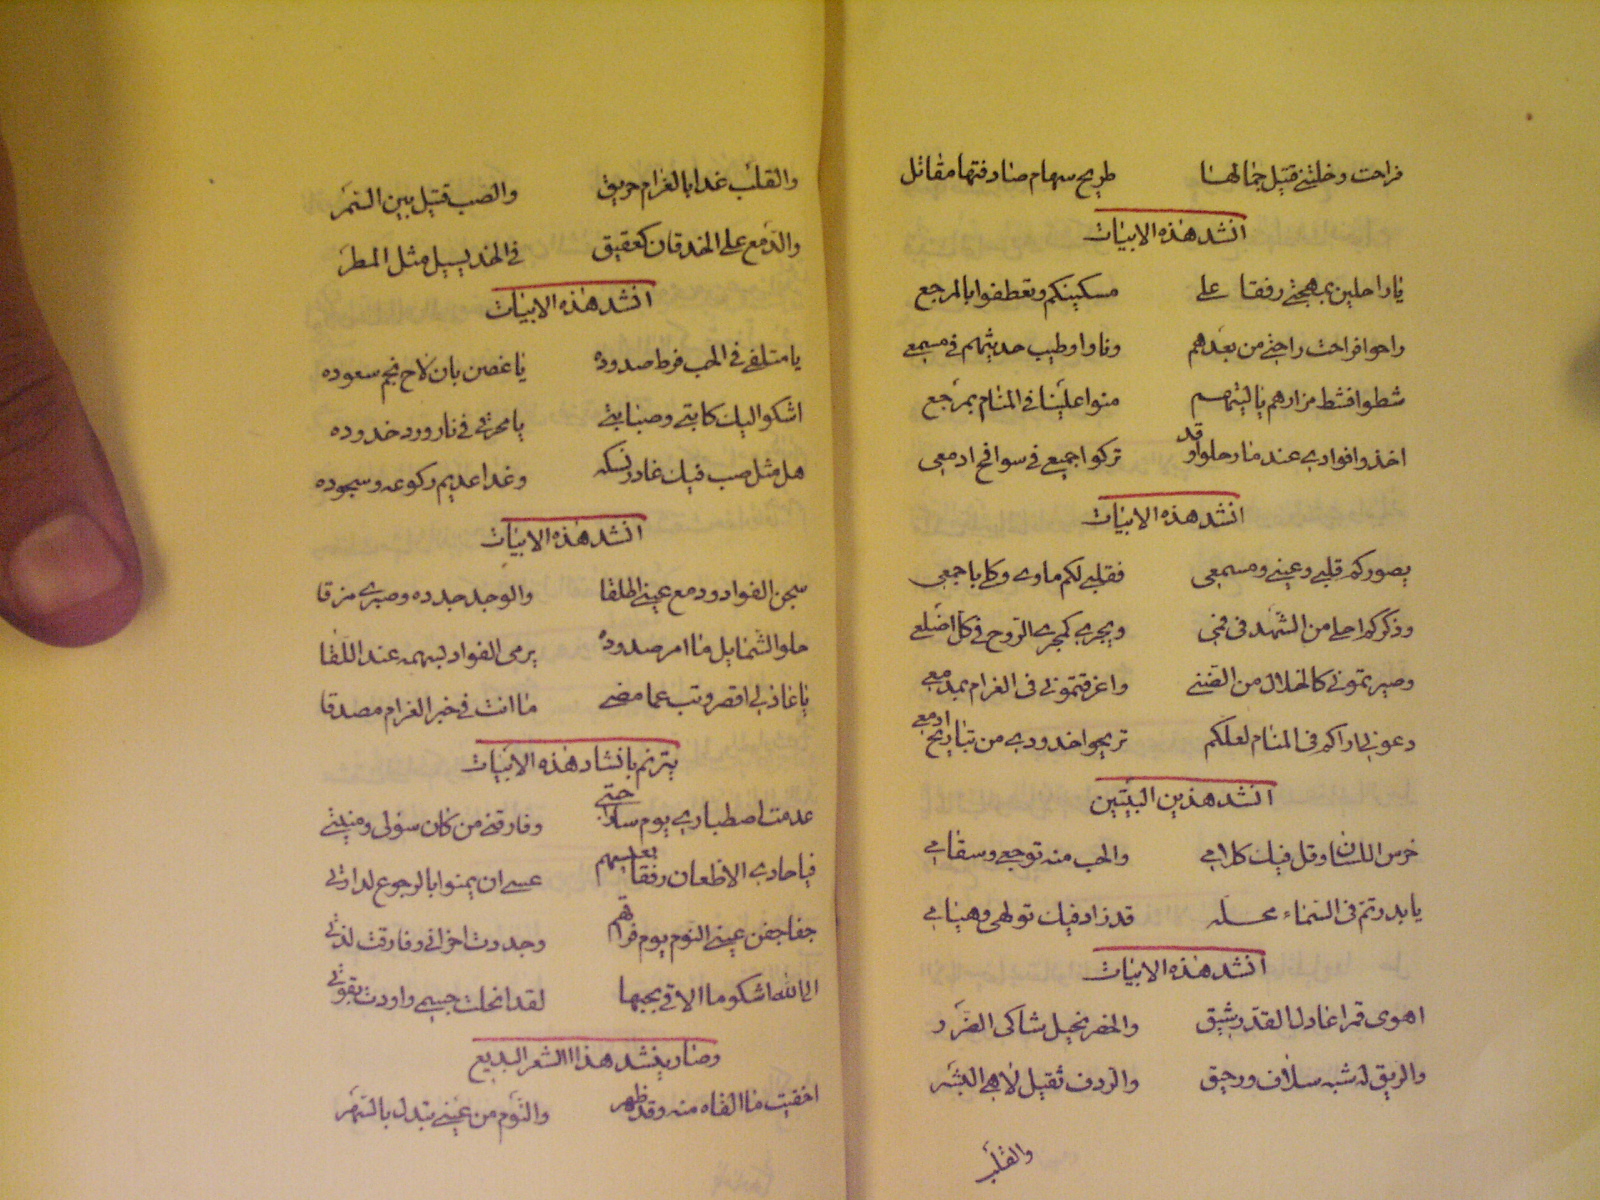 فراحت وخلتني قتيل جمالها طريح سهام صادفتها مقاتل
انشد هذه الابيات
يا راحلين بمهجتي رفقا على مسكينكم وتعطفوا بالمرجع
راحوا فراحت راحتي من بعدهم وناوا وطيب حديثهم في مسمعي
شطوا فشط مزارهم يا ليتهم منوا علينا في المنام بمرجع
اخذوا فوادي عند ما رحلوا وقد تركوا جميع في سوافح ادمعي
انشد هذه الابيات
يصوركم قلبي وعيني ومسمعي فقلبي لكم ماوى وكلي باجمعي
وذكركم احلى من الشهد في فمي ويجري كمجرى الروح في كل اضلعي
وصيرتموني كالهلال من الضنى واغرقتموني في الغرام بمدمعي
دعوني اراكم في المنام لعلكم تريحوا خدودي من تباريح ادمعي
انشد هذين البيتين
خرس اللسان وقل فيك كلامي والحب منه توجعي وسقامي
يا بدر تم في السماء محله قد زاد فيك تولهي وهيامي
انشد هذه الابيات
اهوى قمرا عادل القد رشيق والخصر نحيل شاكي الضرر
والريق له شبه سلاف ورحيق والردف ثقيل لاهي البشر
والقلب
والقلب غدا بالغرام حريق والصب قتيل بين السمر
والدمع على الخد قان كعقيق في الخد يسيل مثل المطر
انشد هذه الابيات
يا متلفي في الحب فرط صدوده يا غصن بان لاح نجم سعوده
اشكو اليك كابتي وصبابتي يا محرقي في نار ورد خدوده
هل مثل صب فيك غادر نسكه وغدا عديم ركوعه وسجوده
انشد هذه الابيات
سجن الفواد ودمع عيني اطلقا والوجد جدده وصبري مزقا
حلو الشمايل ما امر صدوده يرمي الفواد بسهمه عند اللقا
يا عاذلي اقصر وتب عما مضى ما انت في خبر الغرام مصدقا
يترنم بانشاد هذه الابيات
عدمت اصطباري يوم سارا حبتي وفارقني من كان سولي ومنيتي
فيا حادي الاظعان رفقا بعيسهم عسى ان يمنوا بالرجوع لداوتي
جفا جفن عيني النوم يوم فراقهم وجددت احزاني وفارقت لذتي
الى الله اشكو ما الاقي بحبها لقد انحلت جسمي واودت بقوتي
وصار ينشد هذا الشعر البديع
اخفيت ما القاه منه وقد ظهر والنوم من عيني تبدل بالسهر